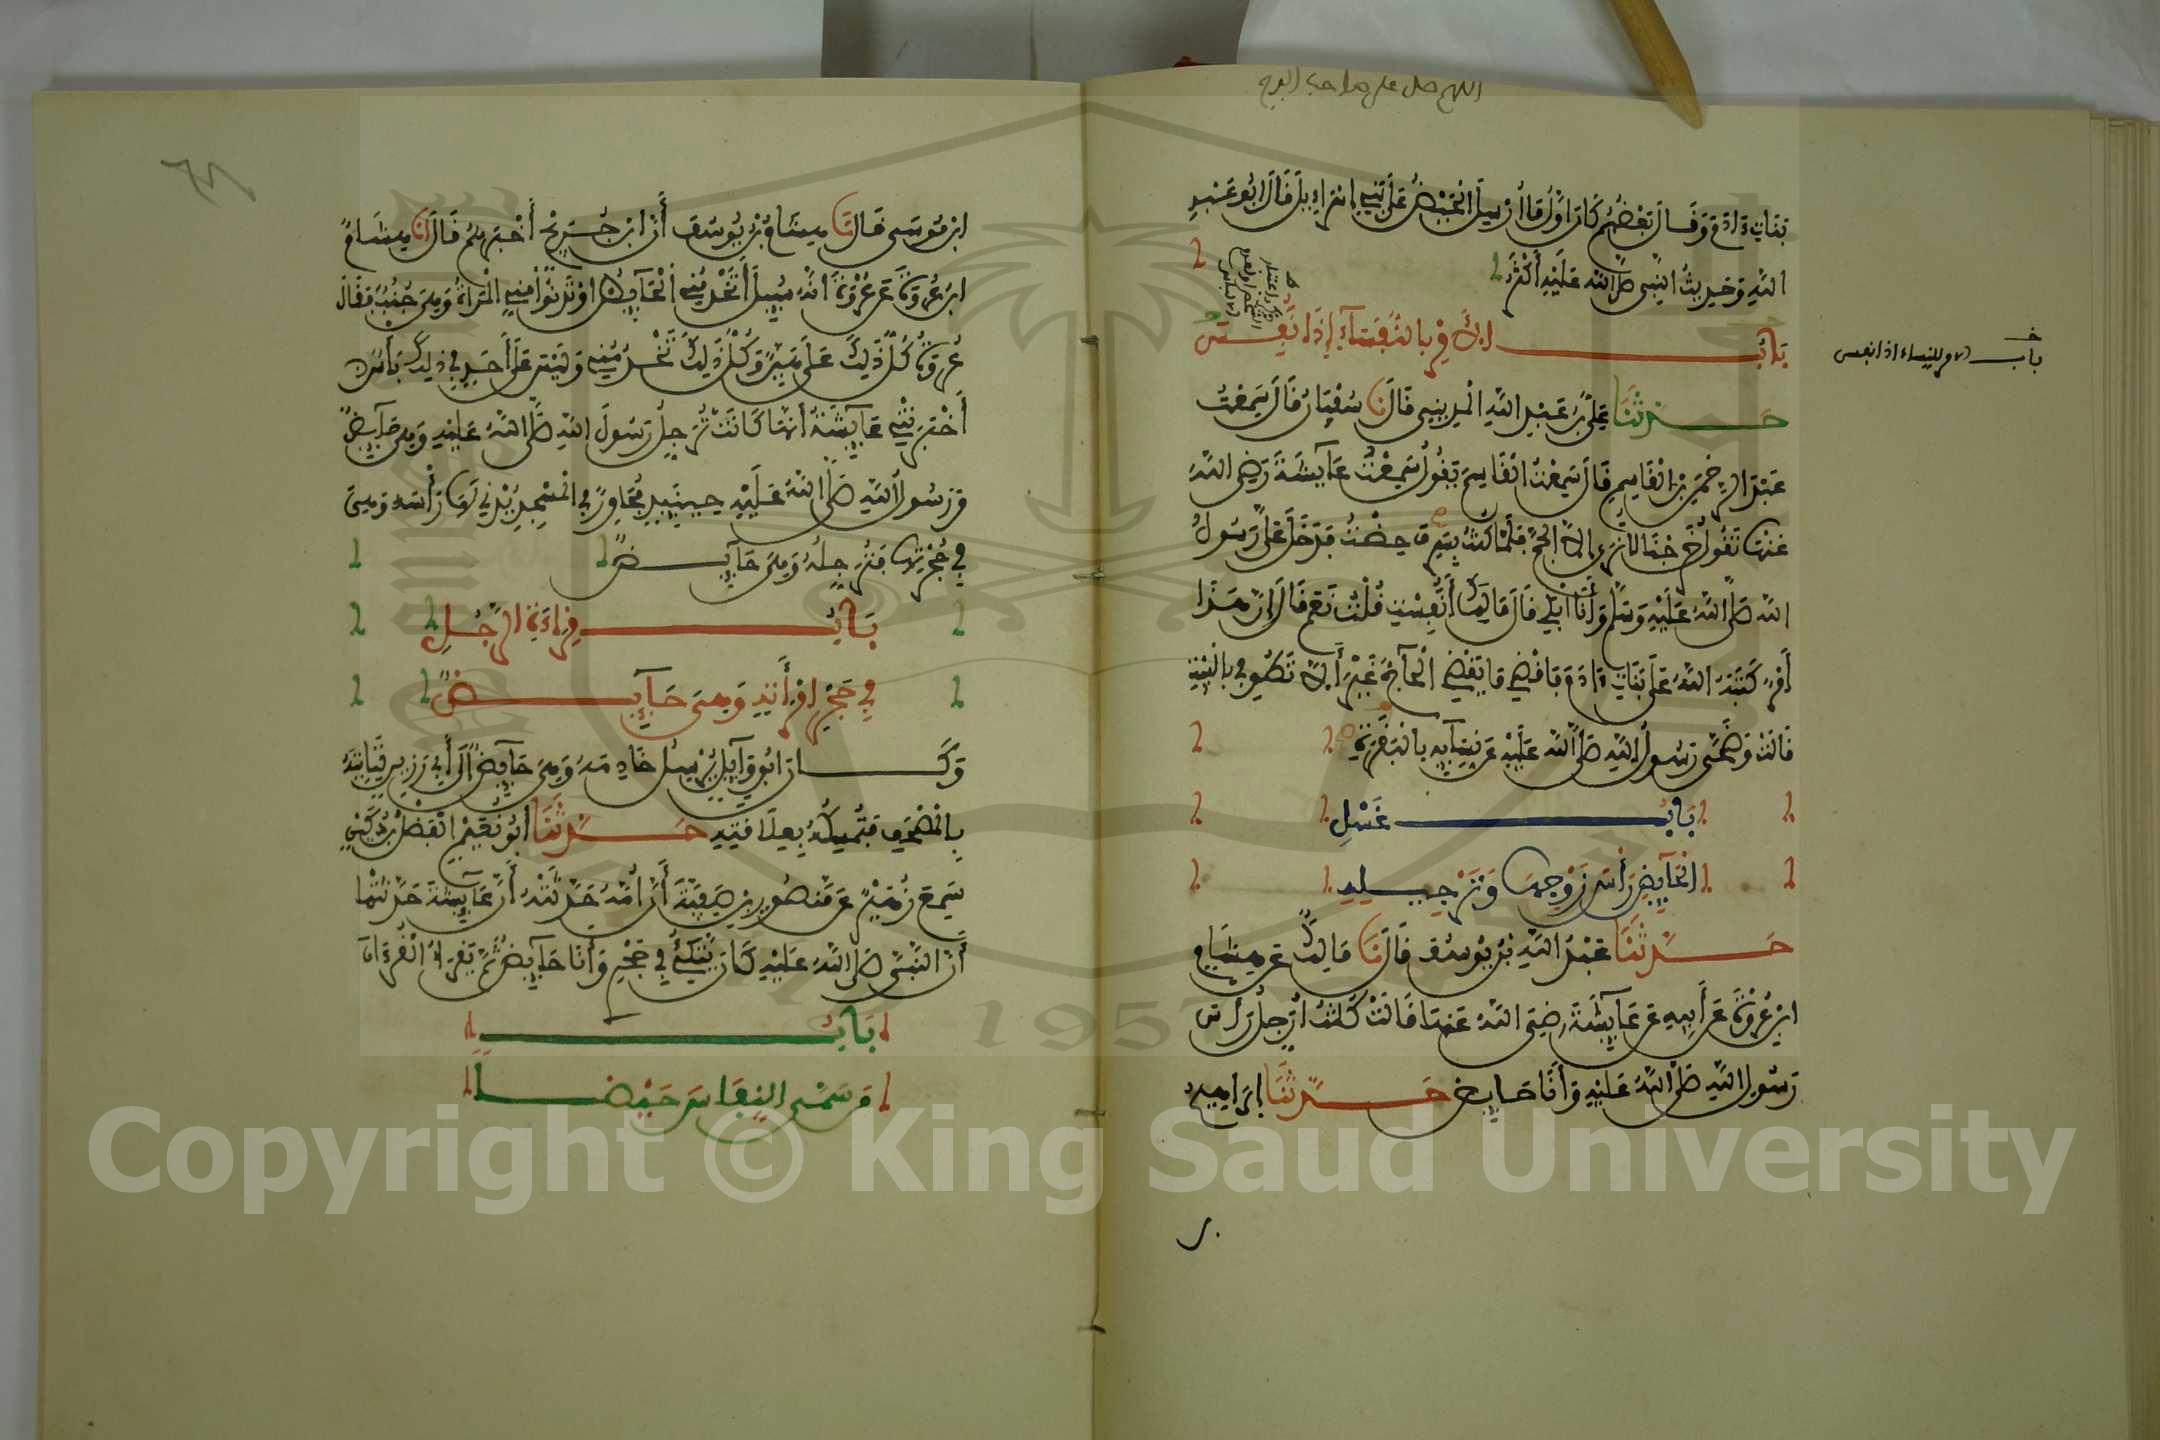 بَنَاتِ ءَادَمَ وَقَالَ بَعْضُهُمْ كَانَ أَوَّلُ مَا أُرْسِلَ الْحَيْضُ عَلَى بَنِي إِسْرَاءِيلَ قَالَ أَبُو عَبْدِ
اللَّهِ وَحَدِيثُ النَّبِيِّ صَلَّى اللَّهُ عَلَيْهِ أَكْثَرُ
بَابُ الأَمْرِ بِالنُّفَسَآءِ إِذَا نَفِسْنَ
باب الامر للنساء اذا نفسن
حَدَّثَنَا عَلِيُّ بْنُ عَبْدِ اللَّهِ الْمَدِينِي قَالَ نَا سُفْيَانُ قَالَ سَمِعْتُ
عَبْدَ الرَّحْمَنِ بْنَ الْقَاسِمِ قَالَ سَمِعْتُ الْقَاسِمَ يَقُولُ سَمِعْتُ عَآيِشَةَ رَضِيَ اللَّهُ
عَنْهَا تَقُولُ خَرَجْنَا لَا نُرَى إِلَّا الْحَجَّ فَلَمَّا كُنْتُ بِسَرِفَ حِضْتُ فَدَخَلَ عَلَيَّ رَسُولُ
اللَّهِ صَلَّى اللَّهُ عَلَيْهِ وَسَلَّمَ وَأَنَا أَبْكِي قَالَ مَا لَكِ أَنُفِسْتِ قُلْتُ نَعَمْ قَالَ إِنَّ هَذَا
أَمْرٌ كَتَبَهُ اللَّهُ عَلَى بَنَاتِ ءَادَمَ فَاقْضِي مَا يَقْضِي الْحَآجُّ غَيْرَ أَلَّا تَطُوفِي بِالْبَيْتِ
قَالَتْ وَضَحَّى رَسُولُ اللَّهِ صَلَّى اللَّهُ عَلَيْهِ عَنْ نِسَآيِهِ بِالْبَقَرَةِ
بَابُ غَسْلِ
الْحَآيِضِ رَأْسَ زَوْجِهَا وَتَرْجِيلِهِ
حَدَّثَنَا عَبْدُ اللَّهِ بْنُ يُوسُفَ قَالَ نَا مَالِكٌ عَنْ هِشَامِ
ابْنِ عُرْوَةَ عَنْ أَبِيهِ عَنْ عَآيِشَةَ رَضِيَ اللَّهُ عَنْهَا قَالَتْ كُنْتُ أُرَجِّلُ رَأْسَ
رَسُولِ اللَّهِ صَلَّى اللَّهُ عَلَيْهِ وَأَنَا حَايِضٌ حَدَّثَنَا إِبْرَاهِيمُ
ابْنُ مُوسَى قَالَ نَا هِشَامُ بْنُ يُوسُفَ أَنَّ ابْنَ جُرَيْجٍ أَخْبَرَهُمْ قَالَ أَنَا هِشَامُ
ابْنُ عُرْوَةَ عَنْ عُرْوَةَ أَنَّهُ سُيِلَ أَتَخْدُمُنِي الْحَآيِضُ أَوْ تَدْنُوا مِنِّي الْمَرْأَةُ وَهِيَ جُنُبٌ فَقَالَ
عُرْوَةُ كُلُّ ذَلِكَ عَلَيَّ هَيِّنٌ وَكُلُّ ذَلِكَ تَخْدُمُنِي وَلَيْسَ عَلَى أَحَدٍ فِي ذَلِكَ بَأْسٌ
أَخْبَرَتْنِي عَآيِشَةُ أَنَّهَا كَانَتْ تُرَجِّلُ رَسُولَ اللَّهِ صَلَّى اللَّهُ عَلَيْهِ وَهِيَ حَآيِضٌ
وَرَسُولُ اللَّهِ صَلَّى اللَّهُ عَلَيْهِ حِينَيِذٍ مُجَاوِرٌ فِي الْمَسْجِدِ يُدْنِي لَهَا رَأْسَهُ وَهِيَ
فِي حُجْرَتِهَا فَتُرَجِّلُهُ وَهِيَ حَآيِضٌ
بَابُ قِرَاءَةِ الرَّجُلِ
فِي حَجْرِ امْرَأَتِهِ وَهِيَ حَآيِضٌ
وَكَانَ أَبُو وَآيِلٍ يُرْسِلُ خَادِمَهُ وَهِيَ حَآيِضٌ إِلَى أَبِي رَزِينٍ لِتَاتِيَهُ
بِالْمُصْحَفِ فَتُمْسِكُهُ بِعِلَاقَتِهِ حَدَّثَنَا أَبُو نُعَيْمٍ الْفَضْلُ بْنُ دُكَيْنٍ
سَمِعَ زُهَيْرًا عَنْ مَنْصُورِ بْنِ صَفِيَّةَ أَنَّ أُمَّهُ حَدَّثَتْهُ أَنَّ عَآيِشَةَ حَدَّثَتْهَا
أَنَّ النَّبِيَّ صَلَّى اللَّهُ عَلَيْهِ كَانَ يَتَّكِئُ فِي حَجْرِي وَأَنَا حَآيِضٌ ثُمَّ يَقْرَأُ الْقُرْءَانَ
بَابُ
مَنْ سَمَّى النِّفَاسَ حَيْضًا
Copyright © King Saud University
1957